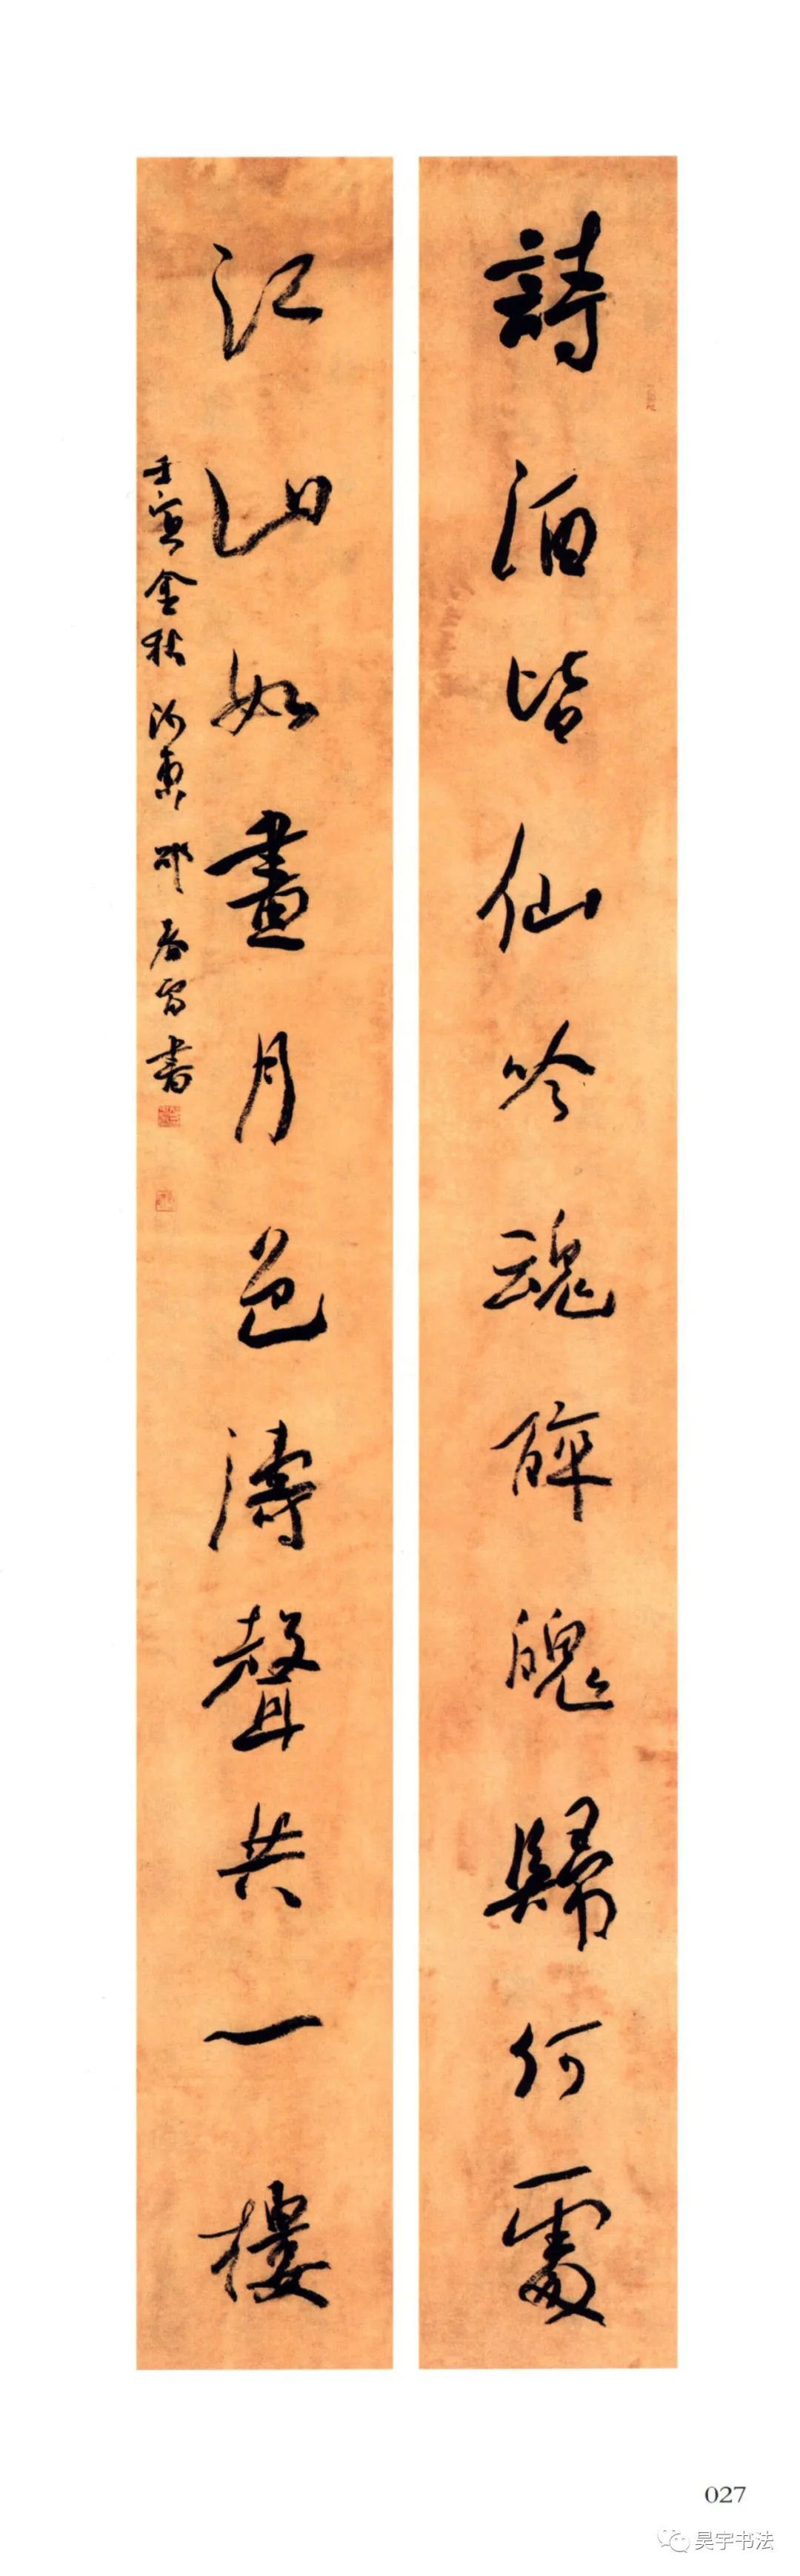 詩酒皆仙吟魂醉魄歸何處
江山如畫月色濤聲共一樓
壬寅金秋 春雷書
027
昊宇书法